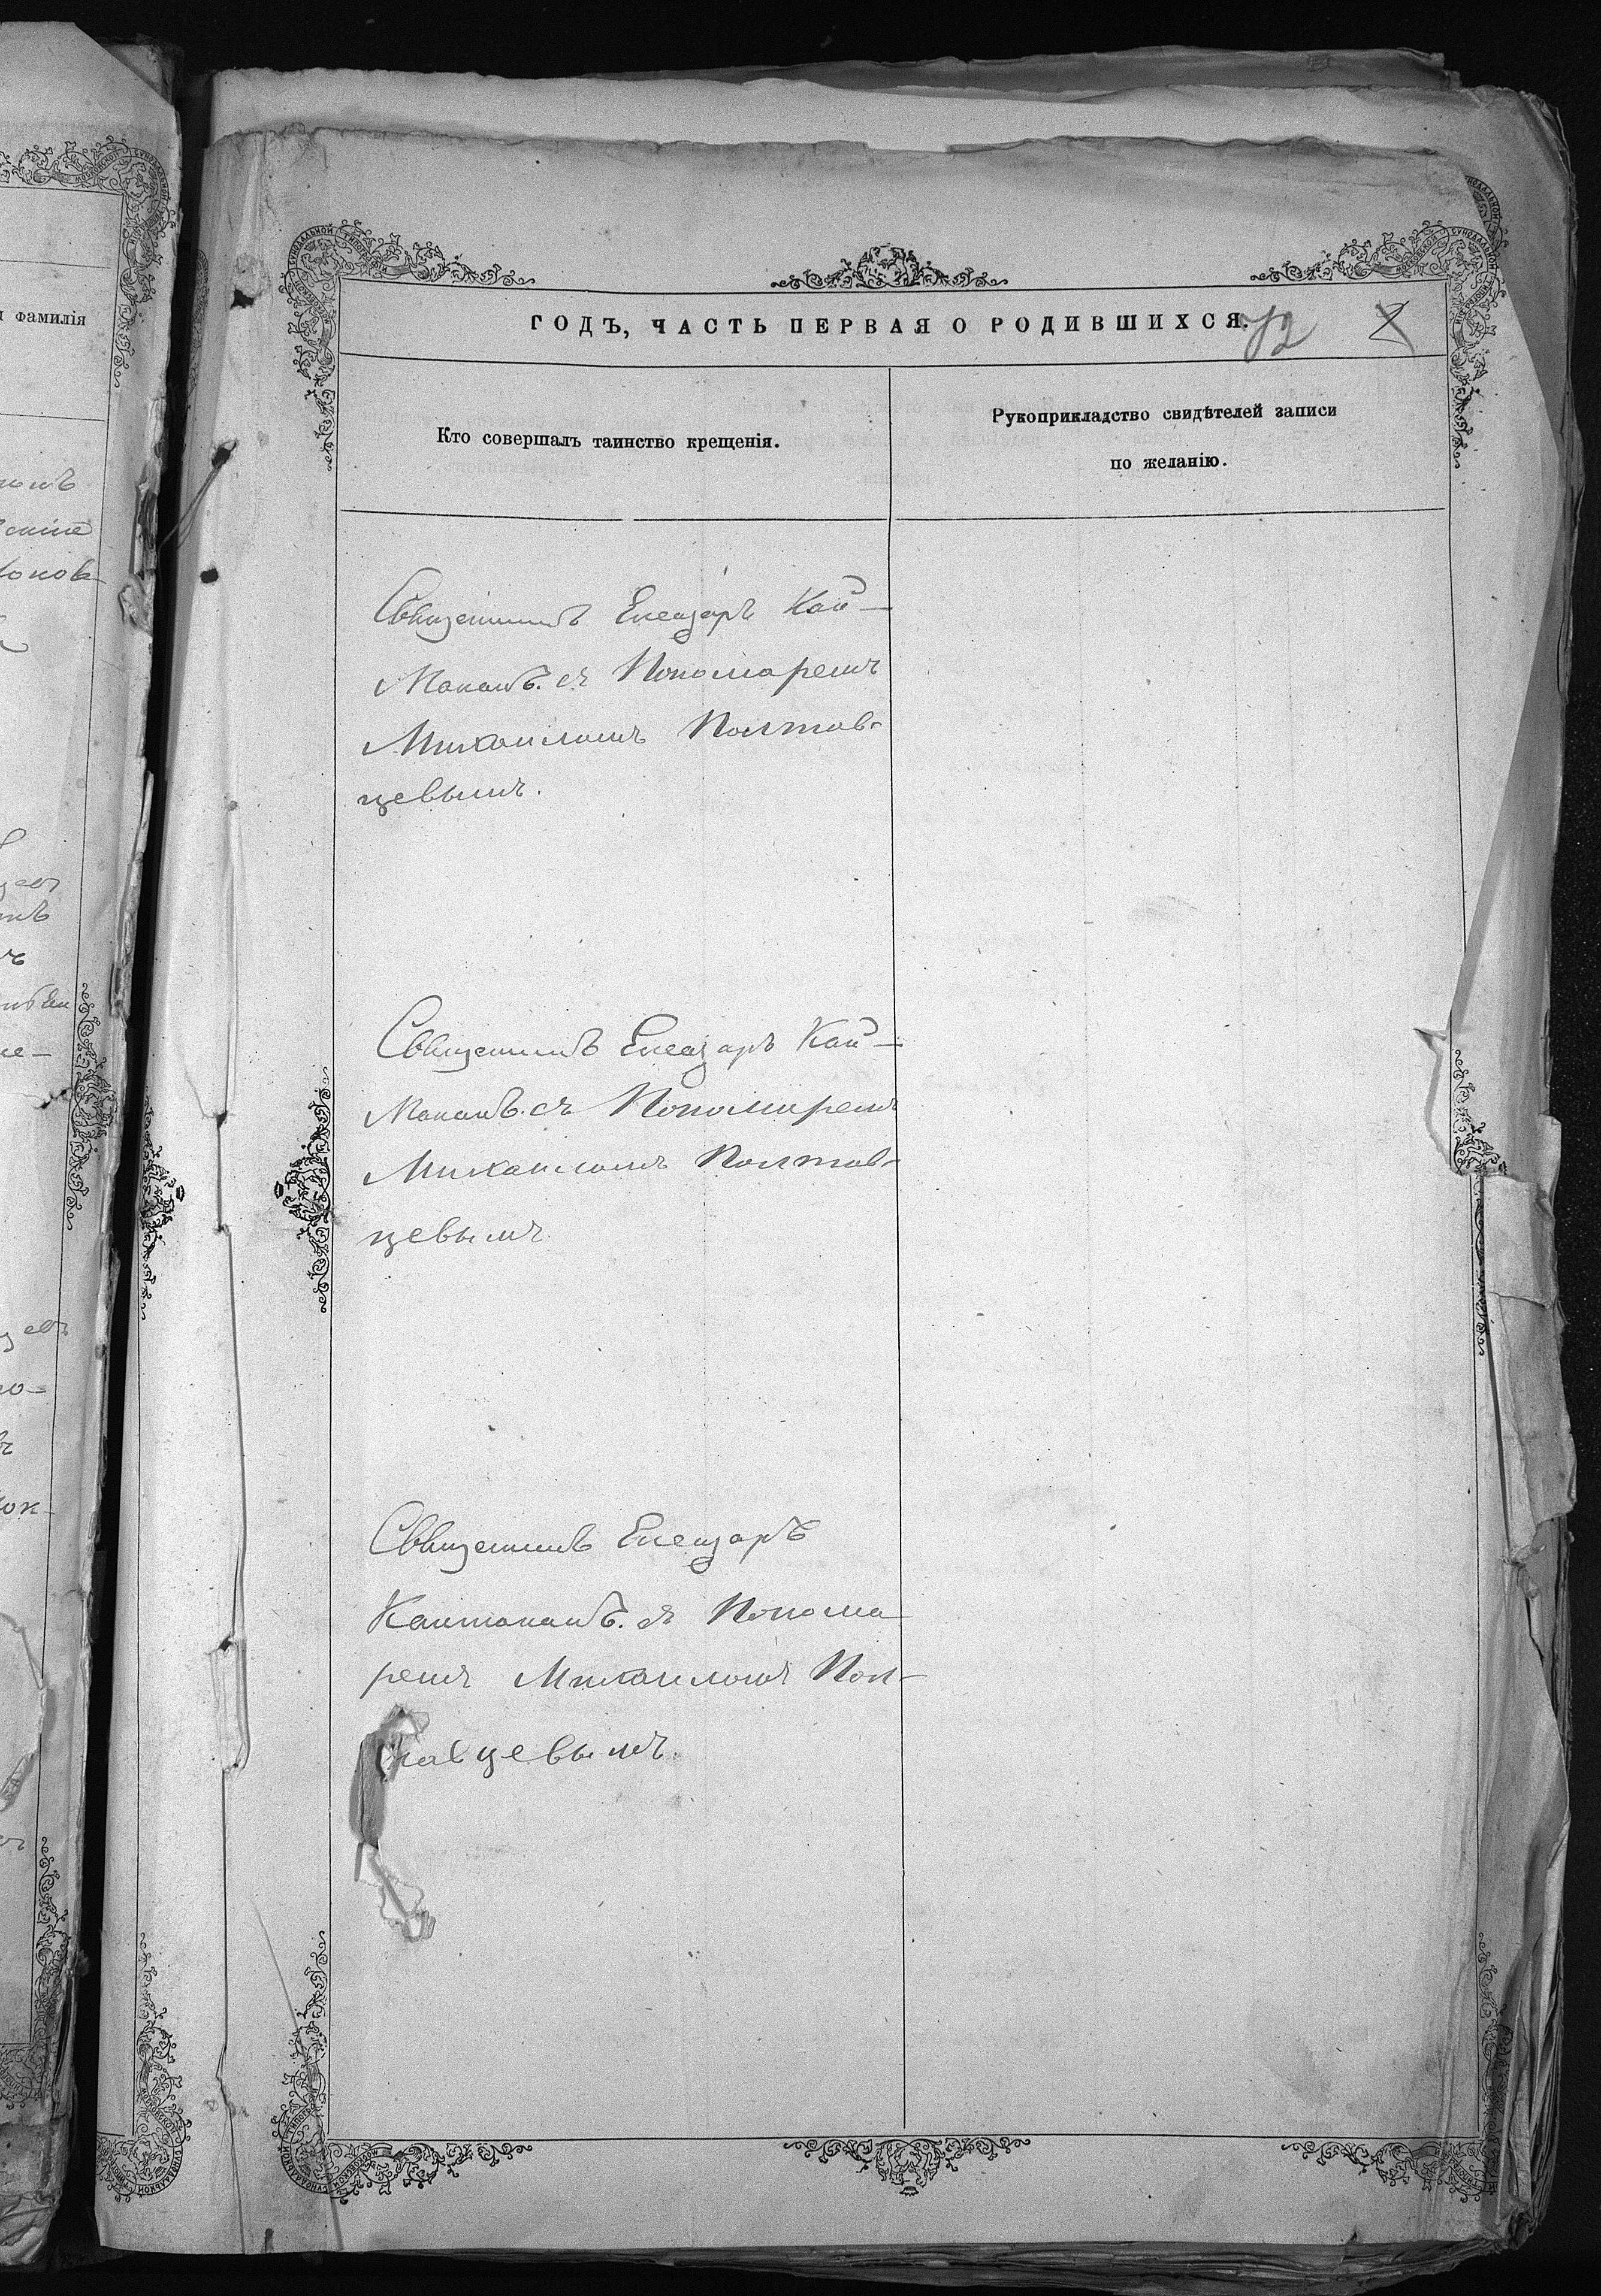 и фамилія
ГОДЪ, ЧАСТЬ ПЕРВАЯ О РОДИВШИХСЯ.
72
Кто совершалъ таинство крещенія.
Рукоприкладство свидѣтелей записи
по желанію.
Священникъ Елеазаръ Кай-
Мокок
Манакъ. съ Пономаремъ
Михаиломъ Полтав-
цевымъ.
Священникъ Елеазаръ Кай-
Манакъ. съ Пономаремъ
Михаиломъ Полтав-
цевымъ.
Священникъ Елеазаръ
Кайманакъ. съ Понома
ремъ Михаиломъ Пол-
тавцевымъ.